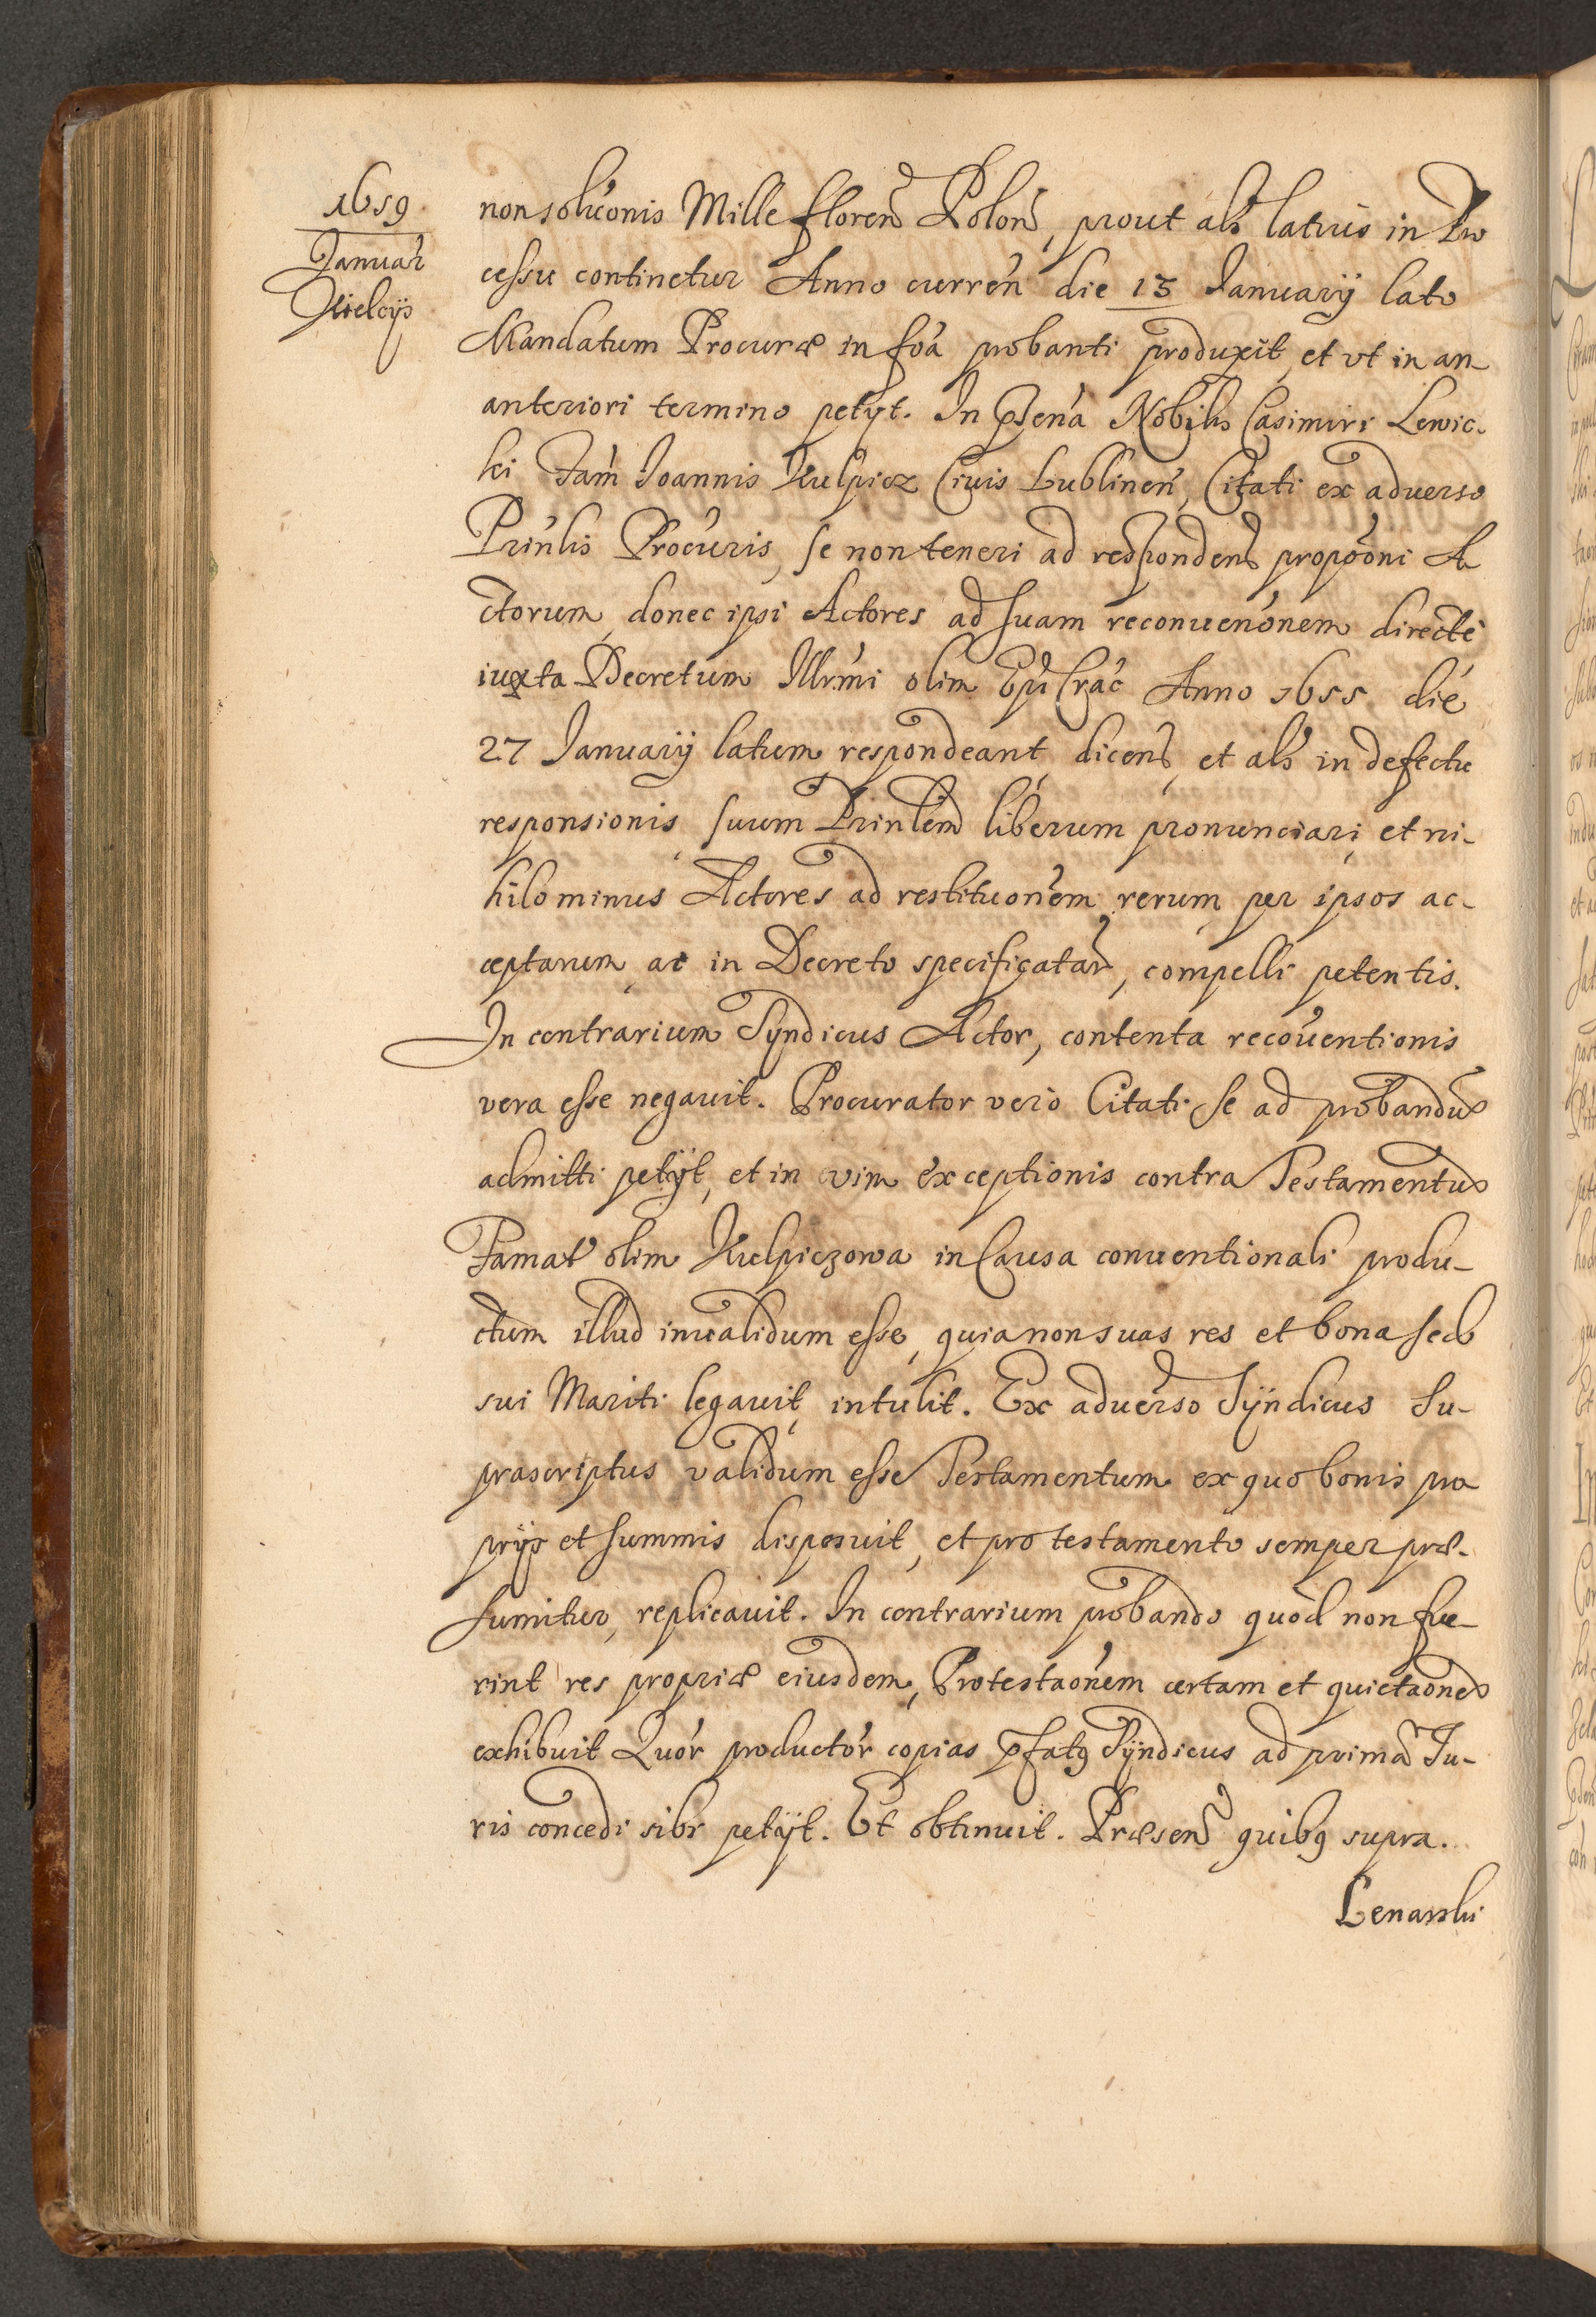 1659
Januar
Kielcijs
non soluõonis Mille floren Polon, prout als latius in Pro
cessu continetur Anno curren die 13 Januarij lato
Mandatum Procuræ in foa probanti produxit, et vt in an
anteriori termino petijt. In psena Nobilis Casimiri Lewic-
ki Fam Joannis Kulpicz Ciuis Lublinen, Citati ex aduerso
Prinlis Procuris, se non teneri ad respondend propõoni A
ctorum, donec ipsi Actores ad suam reconuenõnem directe
iuxta Decretum Illrmi olim Epi Crac Anno 1655 die
27 Januarij latum respondeant, dicens, et als in defectu
responsionis, suum Prinlem liberum pronunciari, et ni-
hilominus Actores ad restituonem rerum per ipsos ac-
ceptarum, ac in Decreto specificatar, compelli petentis.
In contrarium Syndicus Actor, contenta recouentionis
vera esse negauit. Procurator vero Citati se ad probandu
admitti petijt, et in vim exceptionis contra Testamentu
Famat olim Kulpiczowa in Causa conuentionali produ-
ctum illud inualidum esse, quia non suas res et bona sed
sui Mariti legauit, intulit. Ex aduerso Syndicus Su-
prascriptus validum esse Testamentum ex quo bonis pro
prijs et summis disposuit, et pro testamento semper præ-
sumitur, replicauit. In contrarium probando quod non fue-
rint res propriæ eiusdem, Protestaõnem certam et quietaõne
exhibuit Quor productor copias pfatq Syndicus ad prima Iu-
ris concedi sibi petijt. Et obtinuit. Præsen quibq supra.